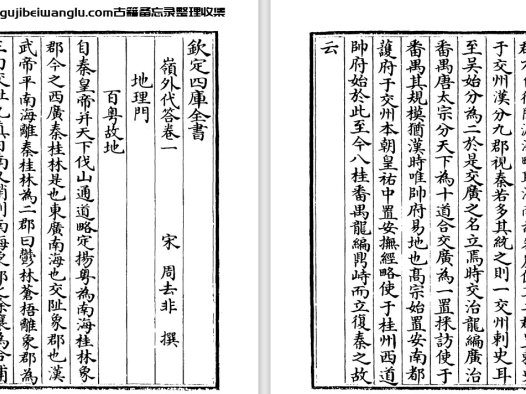 gujibeiwanglu.com古籍备忘录整理收集
欽定四庫全書
嶺外代答卷一
宋 周去非 撰
地理門
百粵故地
自秦皇帝并天下伐山通道略定揚粵為南海桂林象
郡今之西廣秦桂林是也東廣南海也交阯象郡也漢
武帝平南海離秦桂林為二郡曰鬱林蒼梧離象郡為
于交州漢分九郡視秦若多其統之則一交州刺史耳
至吳始分為二於是交廣之名立焉時交治龍編廣治
番禺唐太宗分天下為十道合交廣為一置採訪使于
番禺其規模猶漢時唯帥府易地也高宗始置安南都
護府于交州本朝皇祐中置安撫經略使于桂州西道
帥府始於此至今八桂番禺龍編鼎峙而立復秦之故
云